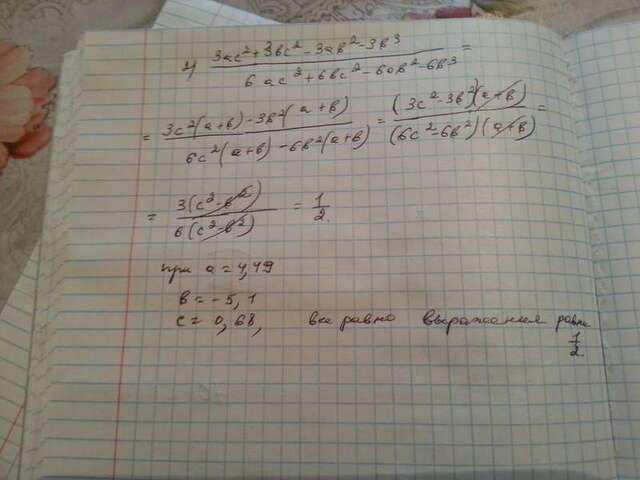 4) (3ac²+3вc²-3aв²-3в³)/(6ac²+6вc²-6aв²-6в³) =
= (3c²(a+в)-3в²(a+в))/(6c²(a+в)-6в²(a+в)) = ((3c²-3в²)(a+в))/((6c²-6в²)(a+в)) =
= (3(c²-в²))/(6(c²-в²)) = 1/2.
при a=4,49
в=-5,1
c=0,68, все равно выражения равны 1/2